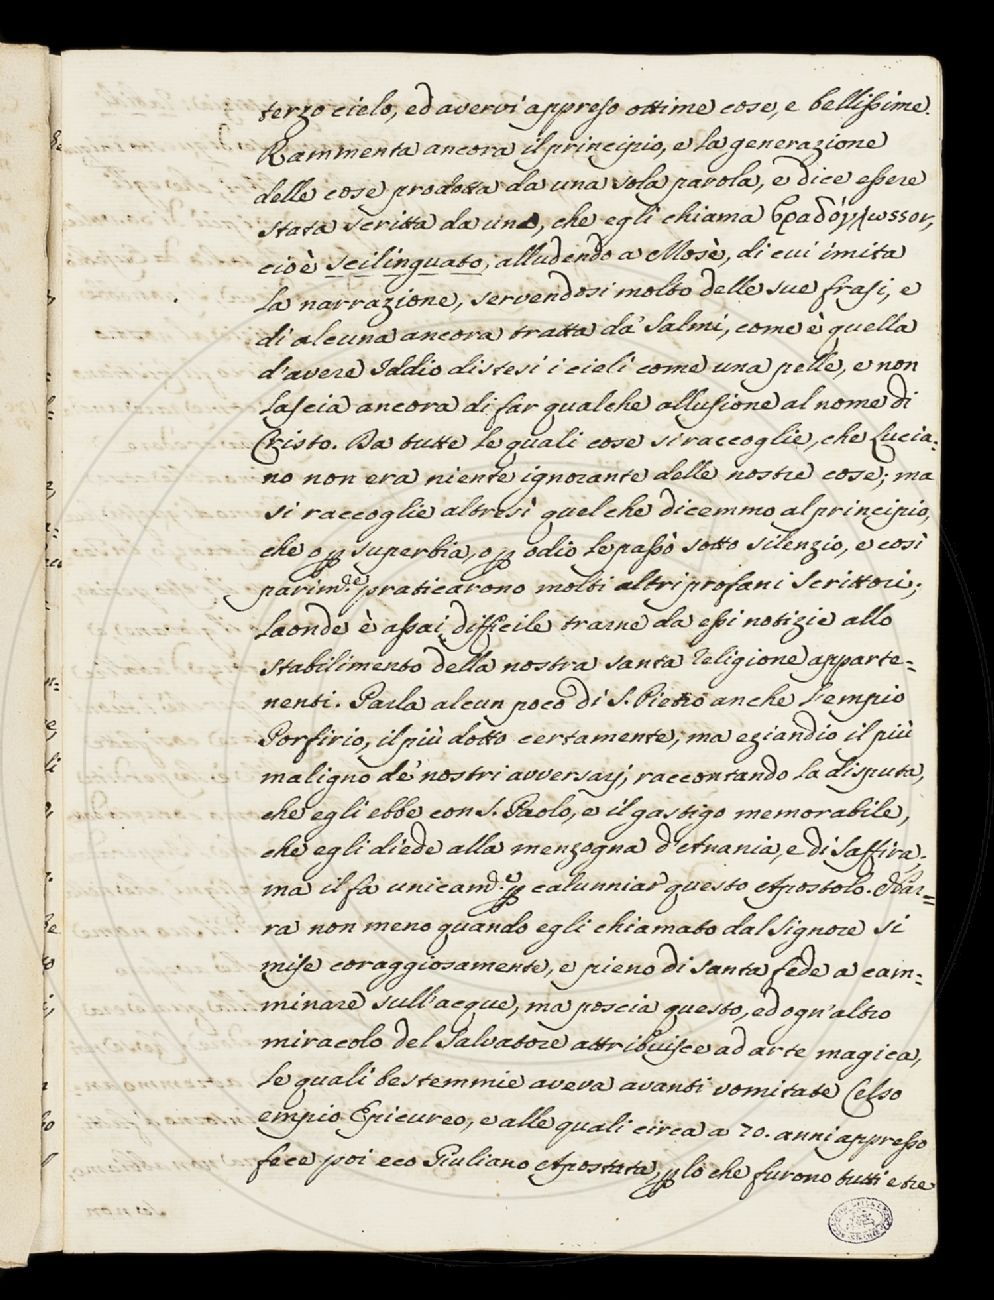 terzo cielo, ed avervi appreſso ottime cose, e belliſsime.
Rammenta ancora il principio, e la generazione
delle cose prodotta da una sola parola, e dice eſsere
stata scritta da uno, che egli chiama βραδόγλωssοr,
cioè scilinguato, alludendo a Mosè, di cui imita
la narrazione, servendosi molto delle sue fraſi, e
di alcuna ancora tratta da' Salmi, come è quella
d'avere Iddio distesi i cieli come una pelle, e non
laſcia ancora di far qualche alluſione al nome di
Cristo. Da tutte le quali cose si raccoglie, che Lucia=
no non era niente ignorante delle nostre cose; ma
si raccoglie altresì quel che dicemmo al principio,
che o ꝑ superbia, o ꝑ odio le paſsò sotto silenzio, e così
parim.e praticarono molti altri profani Scrittori;
laonde è aſsai difficile trarne da eſsi notizie allo
stabilimento della nostra santa Religione apparte=
nenti. Parla alcun poco di S. Pietro anche l'empio
Porfirio, il più dotto certamente, ma eziandio il più
maligno de' nostri avversarj, raccontando la diſputa,
che egli ebbe con S. Paolo, e il gastigo memorabile,
che egli diede alla menzogna d'Anania, e di Saffira;
ma il fa unicam.e ꝑ calunniar questo Apostolo. Nar=
ra non meno quando egli chiamato dal Signore si
miſe coraggiosamente, e pieno di santa fede a cam=
minare sull'acque, ma poscia questo, ed ogn'altro
miracolo del Salvatore attribuiſce ad arte magica,
le quali bestemmie aveva avanti vomitate Celso
empio Epicureo, e alle quali circa a 70. anni appreſso
fece poi eco Giuliano Apostata, ꝑ lo che furono tutti e tre